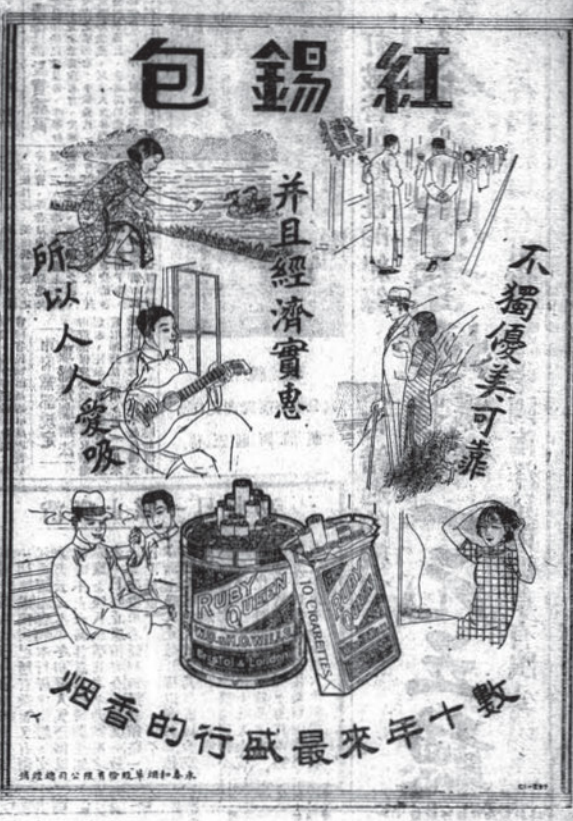 紅錫包
不獨優美可靠
并且經濟實惠
所以人人愛吸
RUBY
QUEEN
W.D.&H.O.WILLS
BRISTOL & LONDON
10 CIGARETTES
RUBY
QUEEN
數十年來最盛行的香烟
永泰和烟草股份有限公司總經